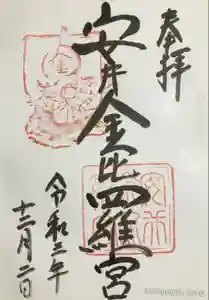 奉拝
安井金比羅宮
令和三年
十二月二日